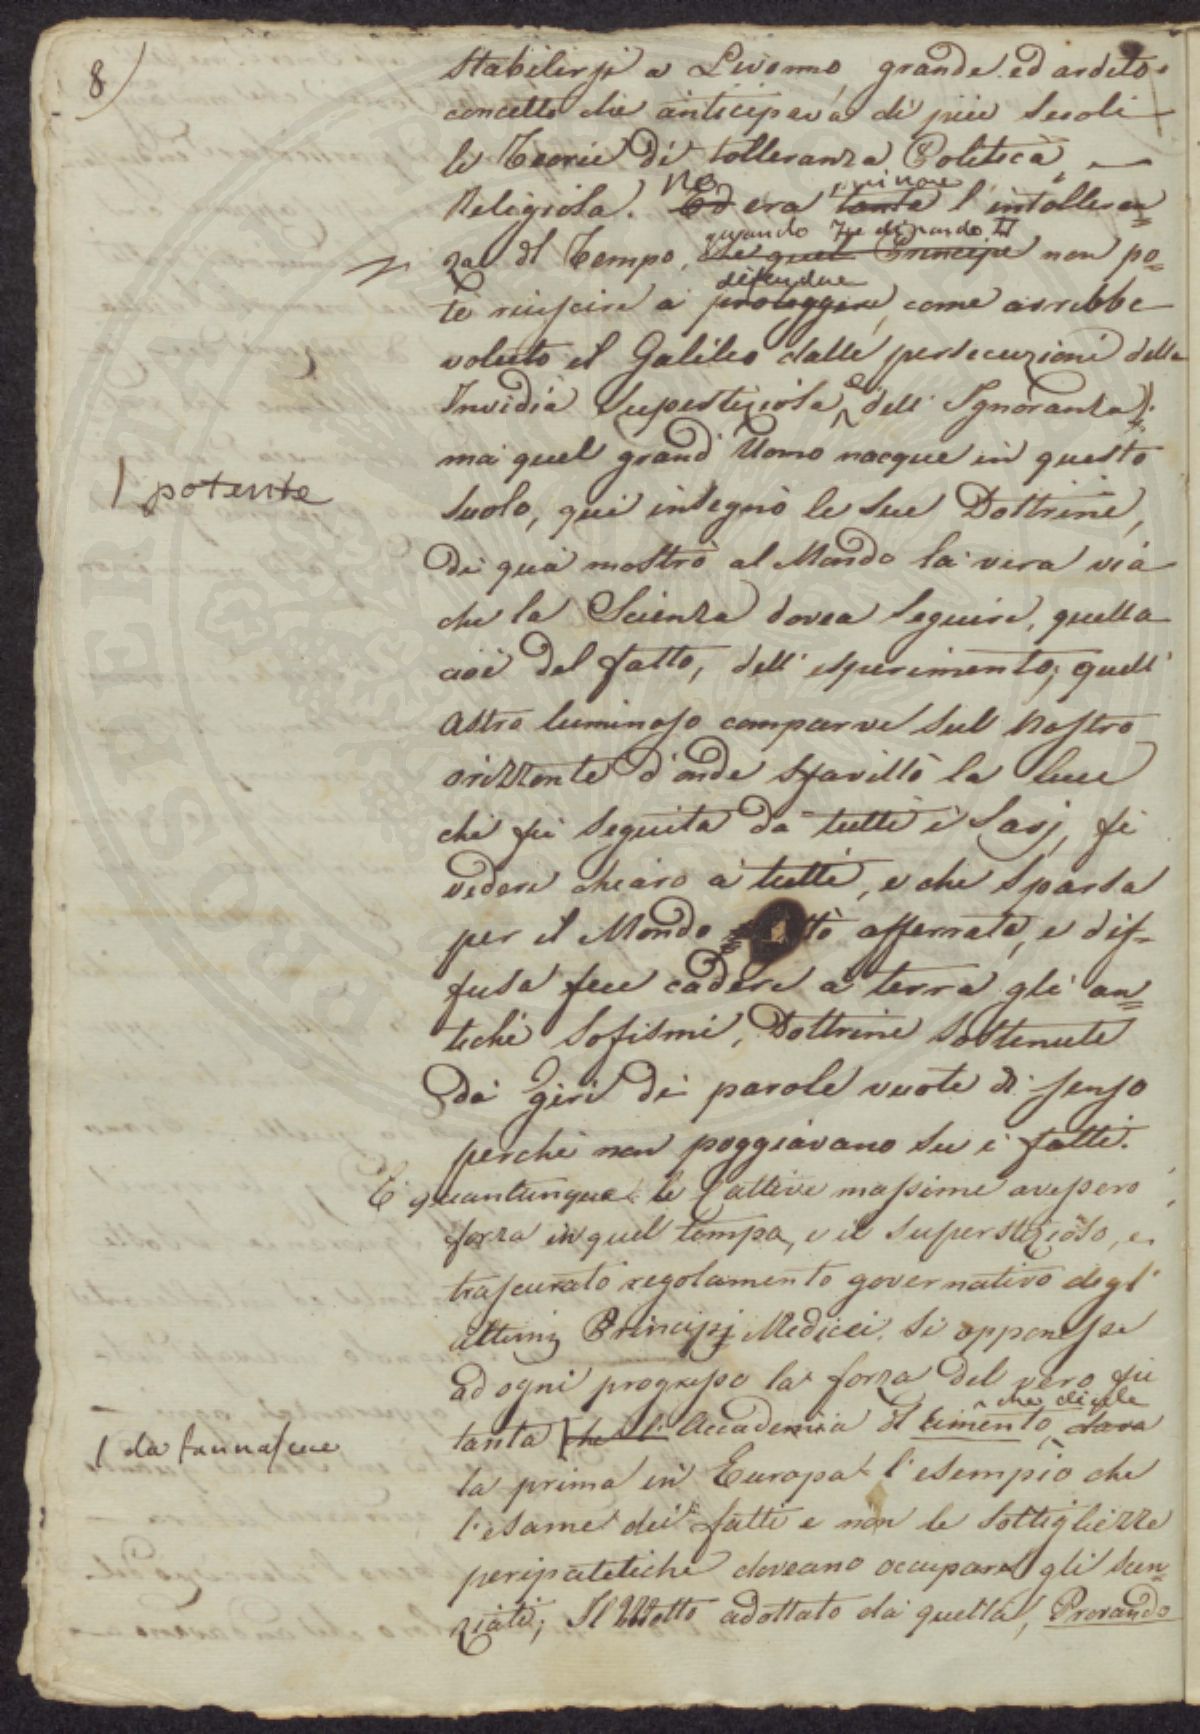 8)
stabilirsi a Livorno, grande ed ardito
concetto che anticipava di più secoli
le Teorie di tolleranza Politica, —
Religiosa. Ed era tanta l'intolleran=
No minore
za del Tempo, che quel Principe non po=
quando Ferdinando II
té riuscire a proteggere, come avrebbe
difendere
voluto il Galileo dalle persecuzioni della
Invidia Superstiziosa, e dell'Ignoranza;
ma quel grand'Uomo nacque in questo
| potente
suolo, qui insegnò le sue Dottrine,
di quà mostrò al Mondo la vera via
che la Scienza dovea seguire, quella
cioè del fatto, dell'esperimento; quell'
astro luminoso comparve sul nostro
orizzonte d'onde sfavillò la luce
che fù seguita da tutti i Savj, fè
vedere chiaro a tutti, e che sparsa
per il Mondo afferrata, e dif-
fusa fece cadere a terra gli an=
tichi sofismi, Dottrine sostenute
da Giri di parole vuote di senso
perché non poggiavano su i fatti.
E quantunque le cattive massime avessero
forza in quel tempo, e il superstizioso, e
trascurato regolamento governativo degl'
ultimi Principj Medicei si opponesse
ad ogni progresso la forza del vero fù
tanta | che l'Accademia del Cimento, dava
che diede
| da far nascere
la prima in Europa l'esempio che
l'esame dei fatti e non le sottigliezze
peripatetiche doveano occupare gli scen=
ziati; Il Motto adottato da quella, Provando